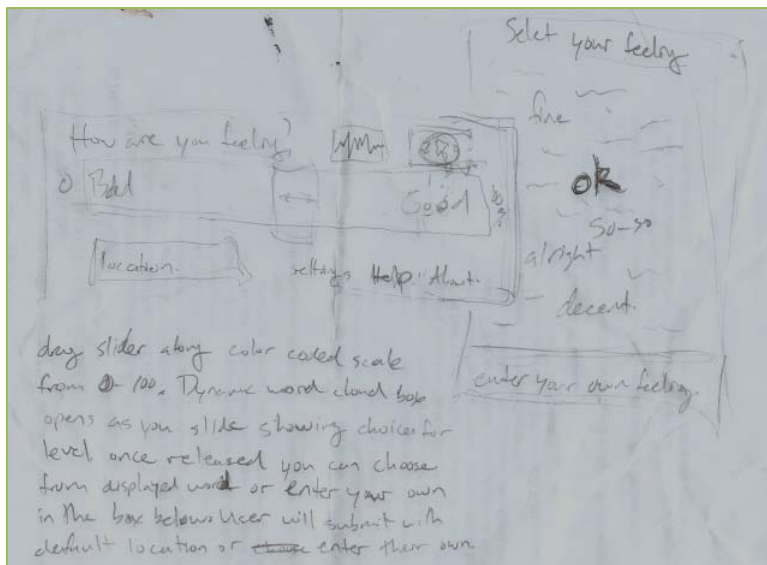 Select your feeling
How are you feeling?
0 Bad Good
location. settings Help. About.
fine
OK
so-so
alright
decent.
enter your own feeling.
drag slider along color coded scale
from 0-100. Dynamic word cloud box
opens as you slide showing choices for
level once released you can choose
from displayed word or enter your own
in the box below. User will submit with
default location or enter their own